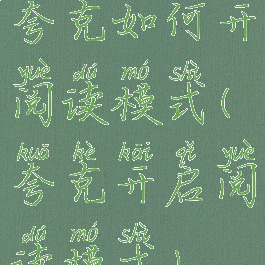 夸克如何开
yuè dú mó shì
阅读模式(
kuā kè kāi qǐ yuè
夸克开启阅
dú mó shì
读模式)